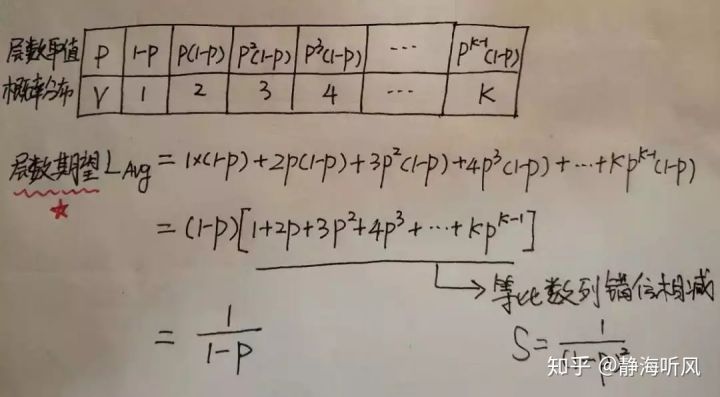 层数取值 P 1-P P(1-P) P²(1-P) P³(1-P) ⋯ P^{k-1}(1-P)
概率分布 V 1 2 3 4 ⋯ K
层数期望 L_Avg = 1×(1-P)+2P(1-P)+3P²(1-P)+4P³(1-P)+⋯+KP^{k-1}(1-P)
☆
= (1-P)[1+2P+3P²+4P³+⋯+KP^{k-1}]
→ 等比数列错位相减
= 1/(1-P) S = 1/(1-P)²
知乎 @静海听风